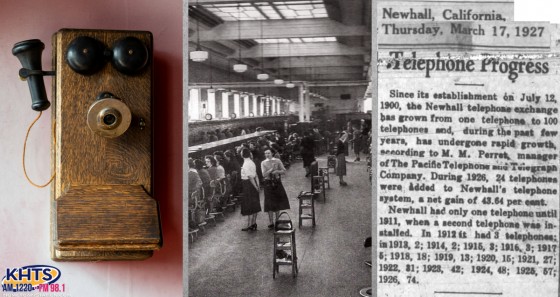 KHTS
AM 1220 FM 98.1
Newhall, California,
Thursday, March 17, 1927
Telephone Progress
Since its establishment on July 12,
1900, the Newhall telephone exchange
has grown from one telephone to 100
telephones and, during the past few
years, has undergone rapid growth,
according to M. M. Perret, manager
of The Pacific Telephone and Telegraph
Company. During 1926, 24 telephones
were added to Newhall's telephone
system, a net gain of 43.64 per cent.
Newhall had only one telephone until
1911, when a second telephone was in-
stalled. In 1912 it had 3 telephones;
in 1913, 2; 1914, 2; 1915, 3; 1916, 3; 1917
5; 1918, 18; 1919, 13; 1920, 15; 1921, 27;
1922, 31; 1923, 42; 1924, 48; 1925, 57
1926, 74.